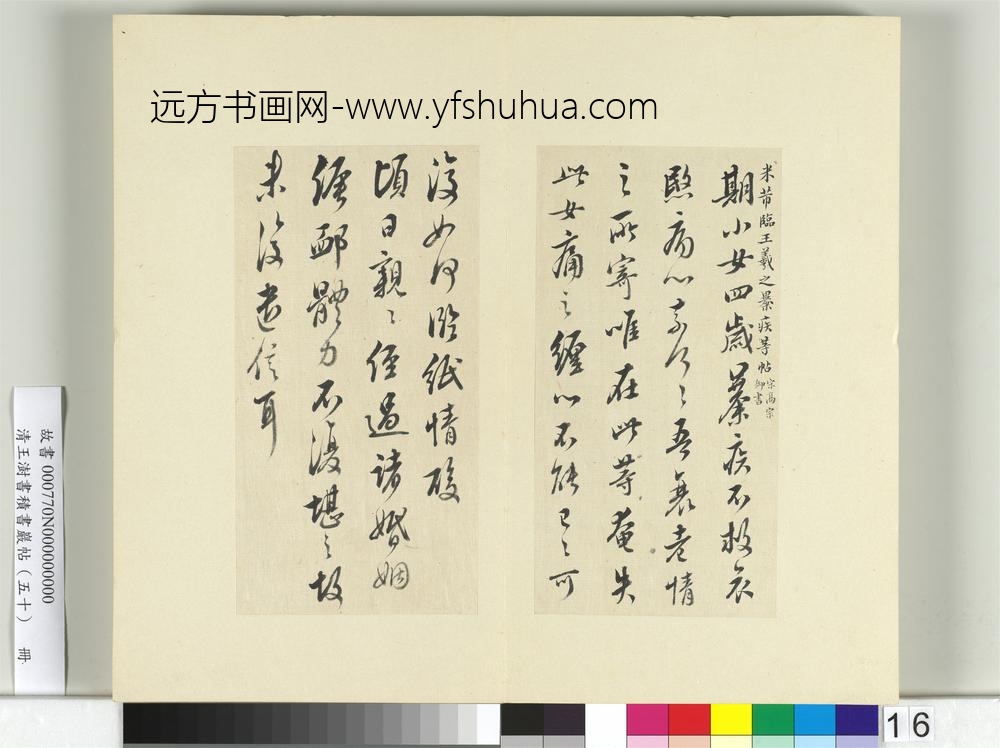 远方书画网-www.yfshuhua.com
米芾臨王羲之暴疾等帖 宋高宗
御書
期小女四歲暴疾不救哀
愍痛心奈何之吾衰老情
之所寄唯在此等奄失
此女痛之纏心不能已之可
復如何臨紙情酸
頃日親之經過諸婚姻
經郵體力不復堪之故
未復遣信耳
故書 000770N000000000
清王澍書積書巖帖(五十) 冊
16